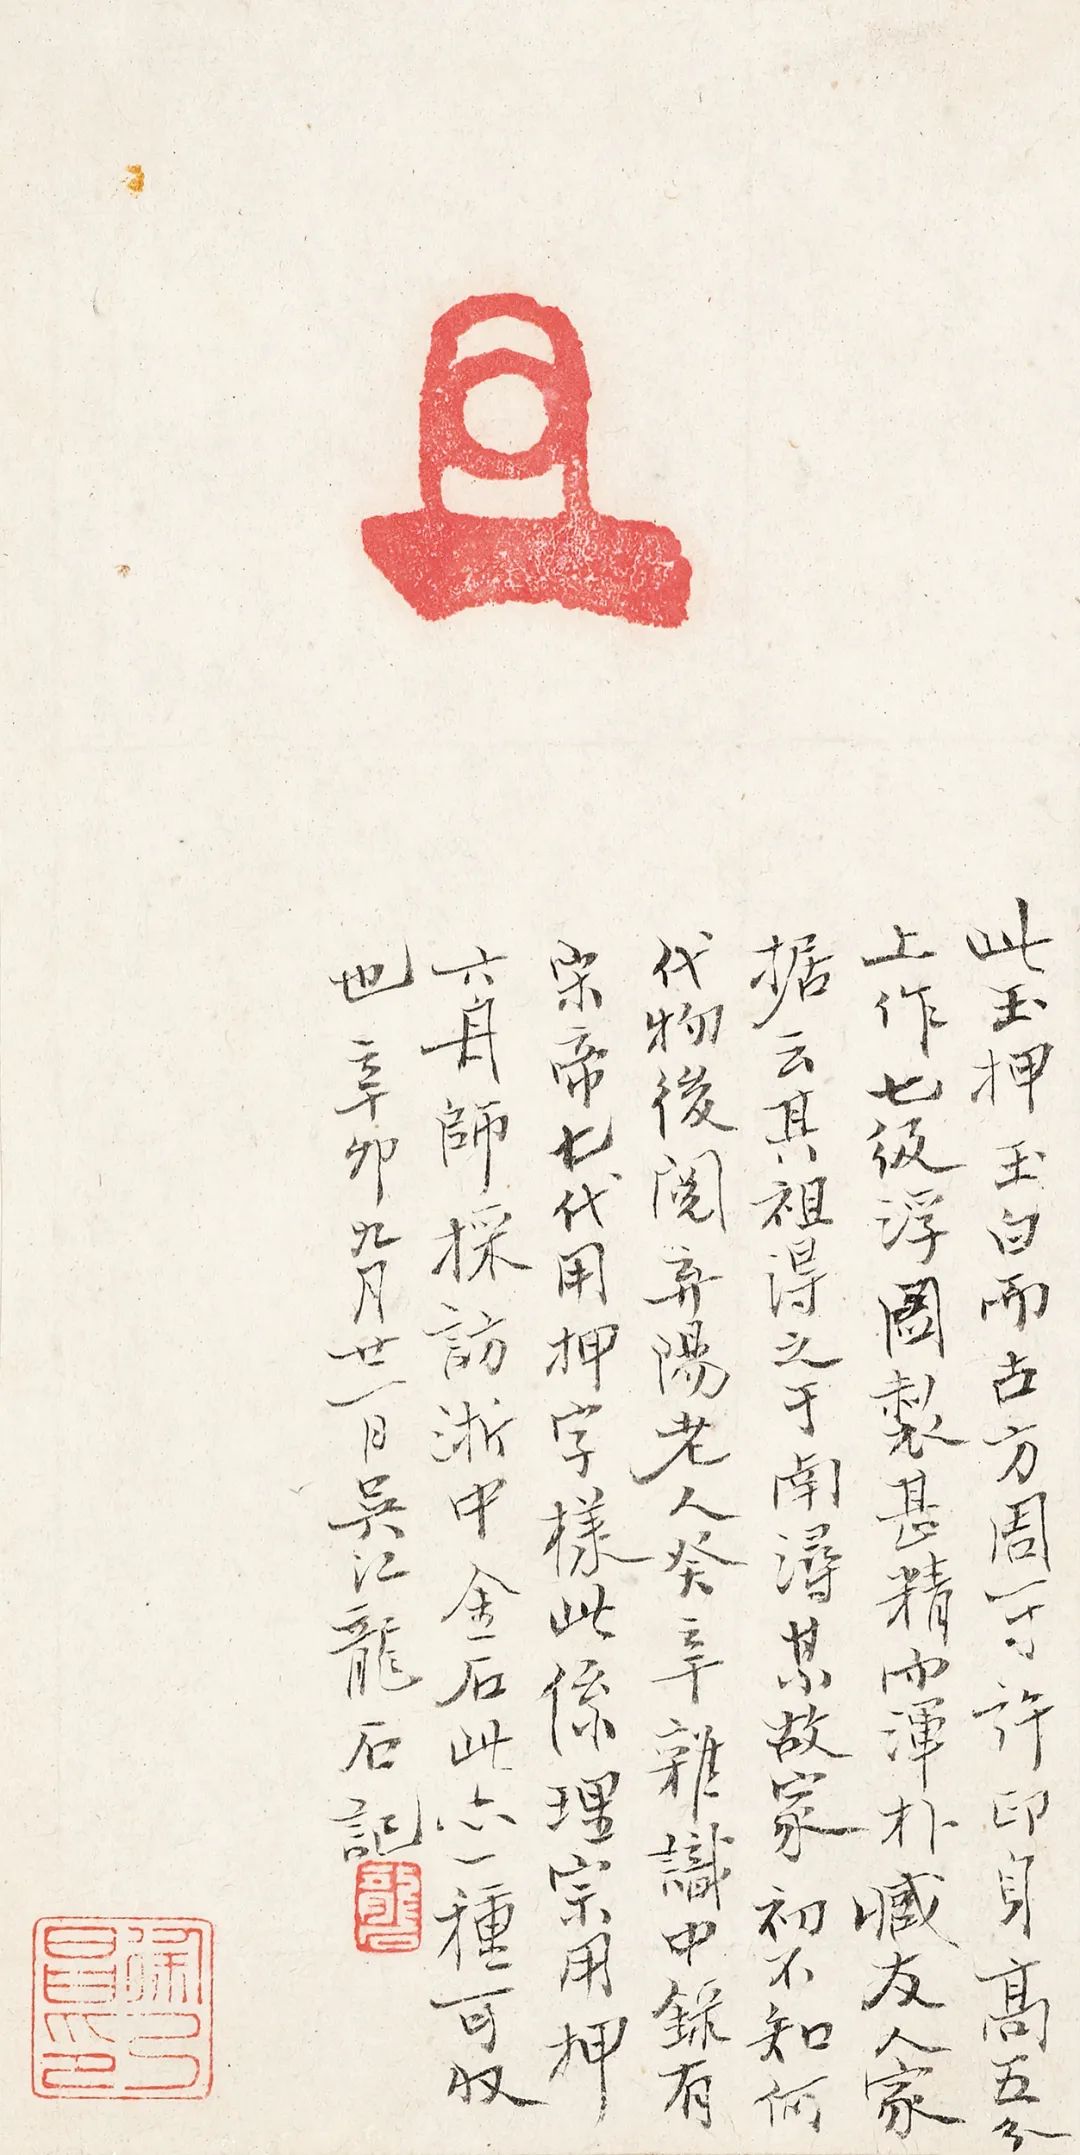 此玉押玉白而古方周一寸許印身高五分
上作七級浮圖製甚精而渾朴臧友人家
据云其祖得之于南潯某故家初不知何
代物後閱弁陽老人癸辛雜識中錄有
宋帝七代用押字樣此係理宗用押
六舟師採訪浙中金石此亦一種可收
也辛卯九月廿一日吳江龍石記